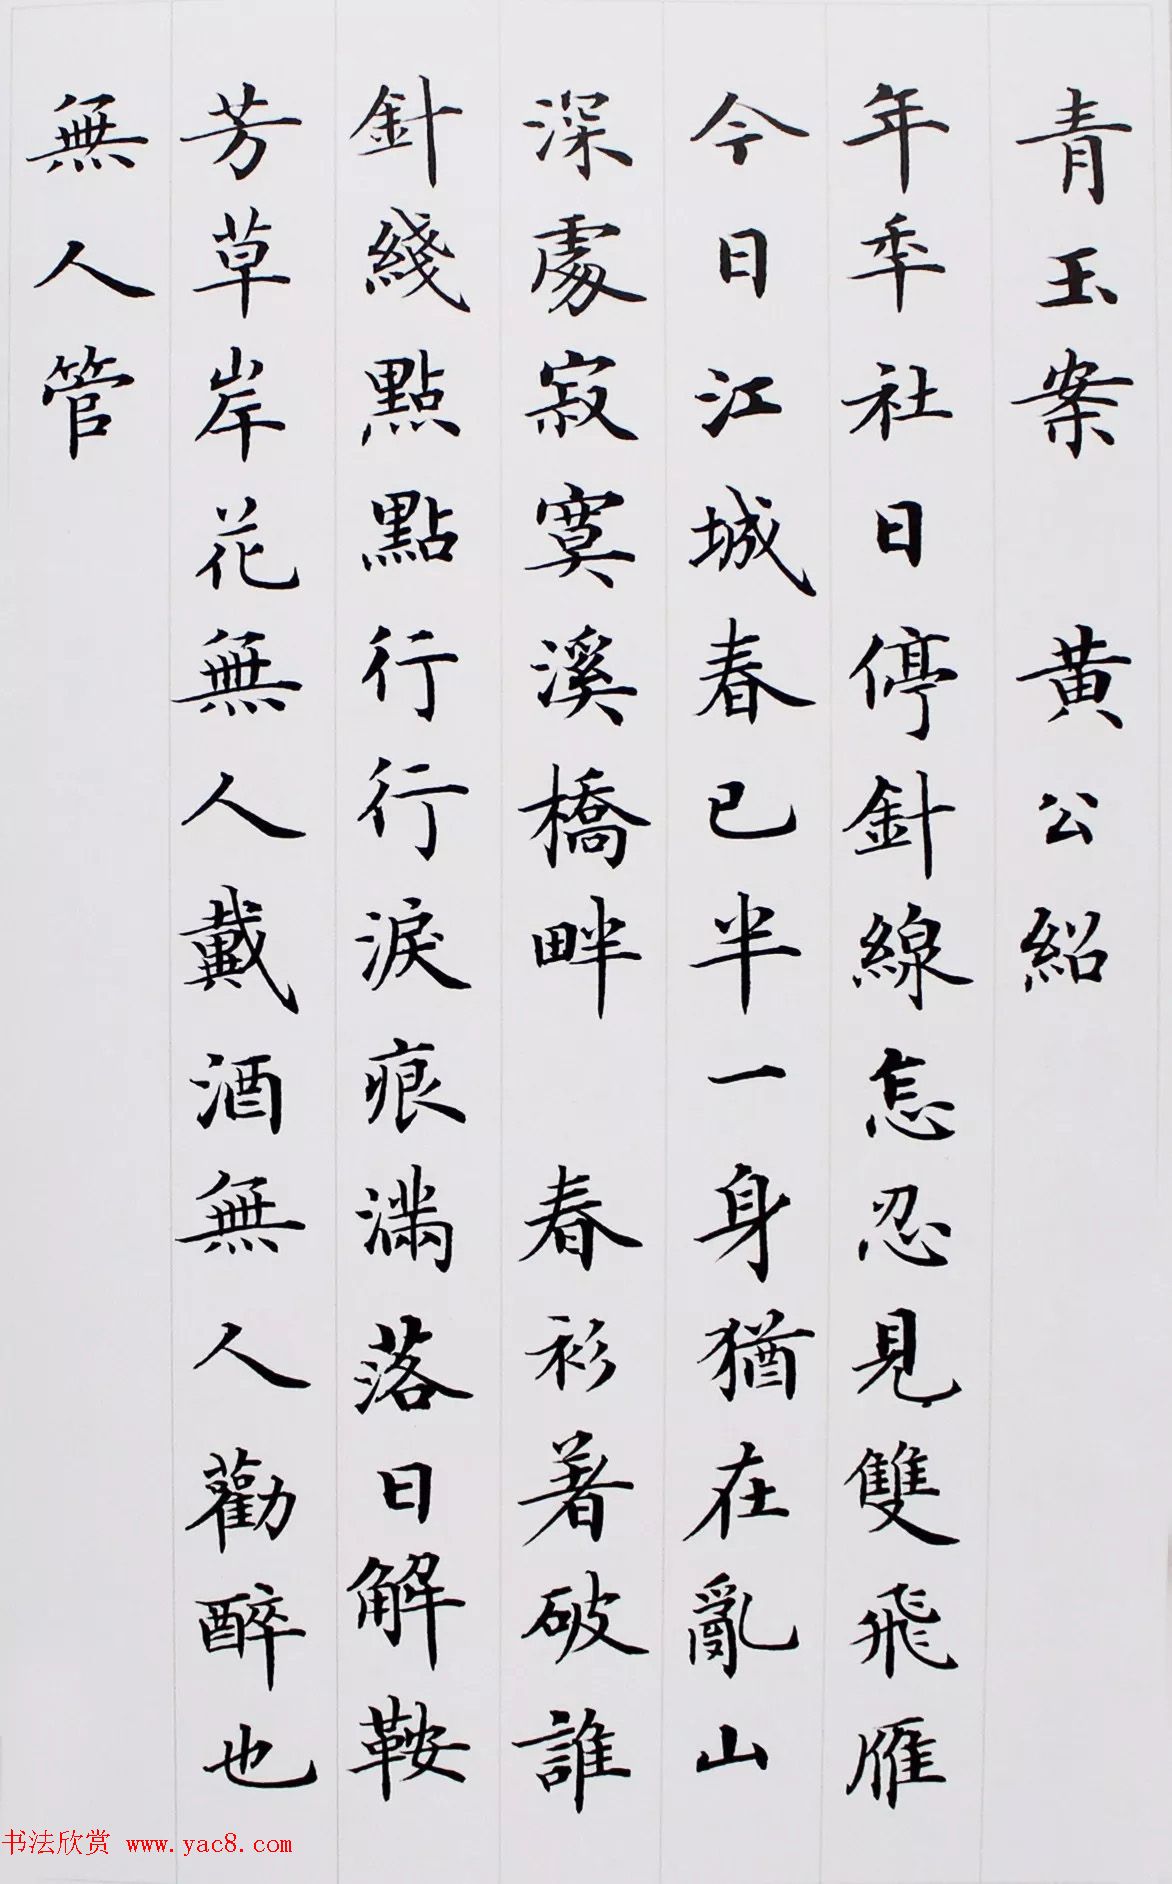 青玉案 黄公紹
年年社日停針線怎忍見雙飛雁
今日江城春已半一身猶在亂山
深處寂寞溪橋畔 春衫著破誰
針綫點點行行淚痕滿落日解鞍
芳草岸花無人戴酒無人勸醉也
無人管
书法欣赏 www.yac8.com